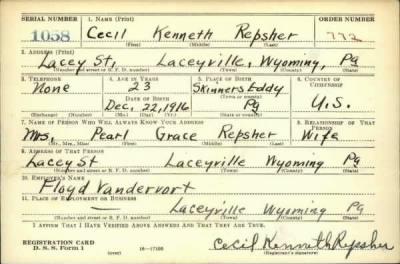 SERIAL NUMBER 1. NAME (Print) ORDER NUMBER
1058 Cecil Kenneth Repsher 772
(First) (Middle) (Last)
2. ADDRESS (Print)
Lacey St, Laceyville, Wyoming, Pa
(Number and street or R. F. D. number) (Town) (County) (State)
3. TELEPHONE 4. AGE IN YEARS 5. PLACE OF BIRTH 6. COUNTRY OF CITIZENSHIP
None 23 Skinners Eddy
DATE OF BIRTH (Town or county)
Dec, 22, 1916 Pa U.S.
(Exchange) (Number) (Mo.) (Day) (Yr.) (State or country)
7. NAME OF PERSON WHO WILL ALWAYS KNOW YOUR ADDRESS 8. RELATIONSHIP OF THAT PERSON
Mrs, Pearl Grace Repsher Wife
(Mr., Mrs., Miss) (First) (Middle) (Last)
9. ADDRESS OF THAT PERSON
Lacey St Laceyville Wyoming Pa
(Number and street or R. F. D. number) (Town) (County) (State)
10. EMPLOYER'S NAME
Floyd Vandervort
11. PLACE OF EMPLOYMENT OR BUSINESS
— Laceyville Wyoming Pa
(Number and street or R. F. D. number) (Town) (County) (State)
I AFFIRM THAT I HAVE VERIFIED ABOVE ANSWERS AND THAT THEY ARE TRUE.
REGISTRATION CARD
D. S. S. Form 1 16—17105 Cecil Kenneth Repsher
(Registrant's signature)